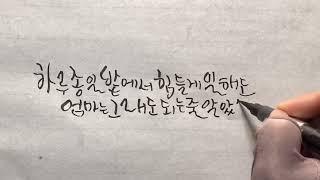 하루종일 밭에서 힘들게 일해도
엄마는 그래도 되는줄 알았